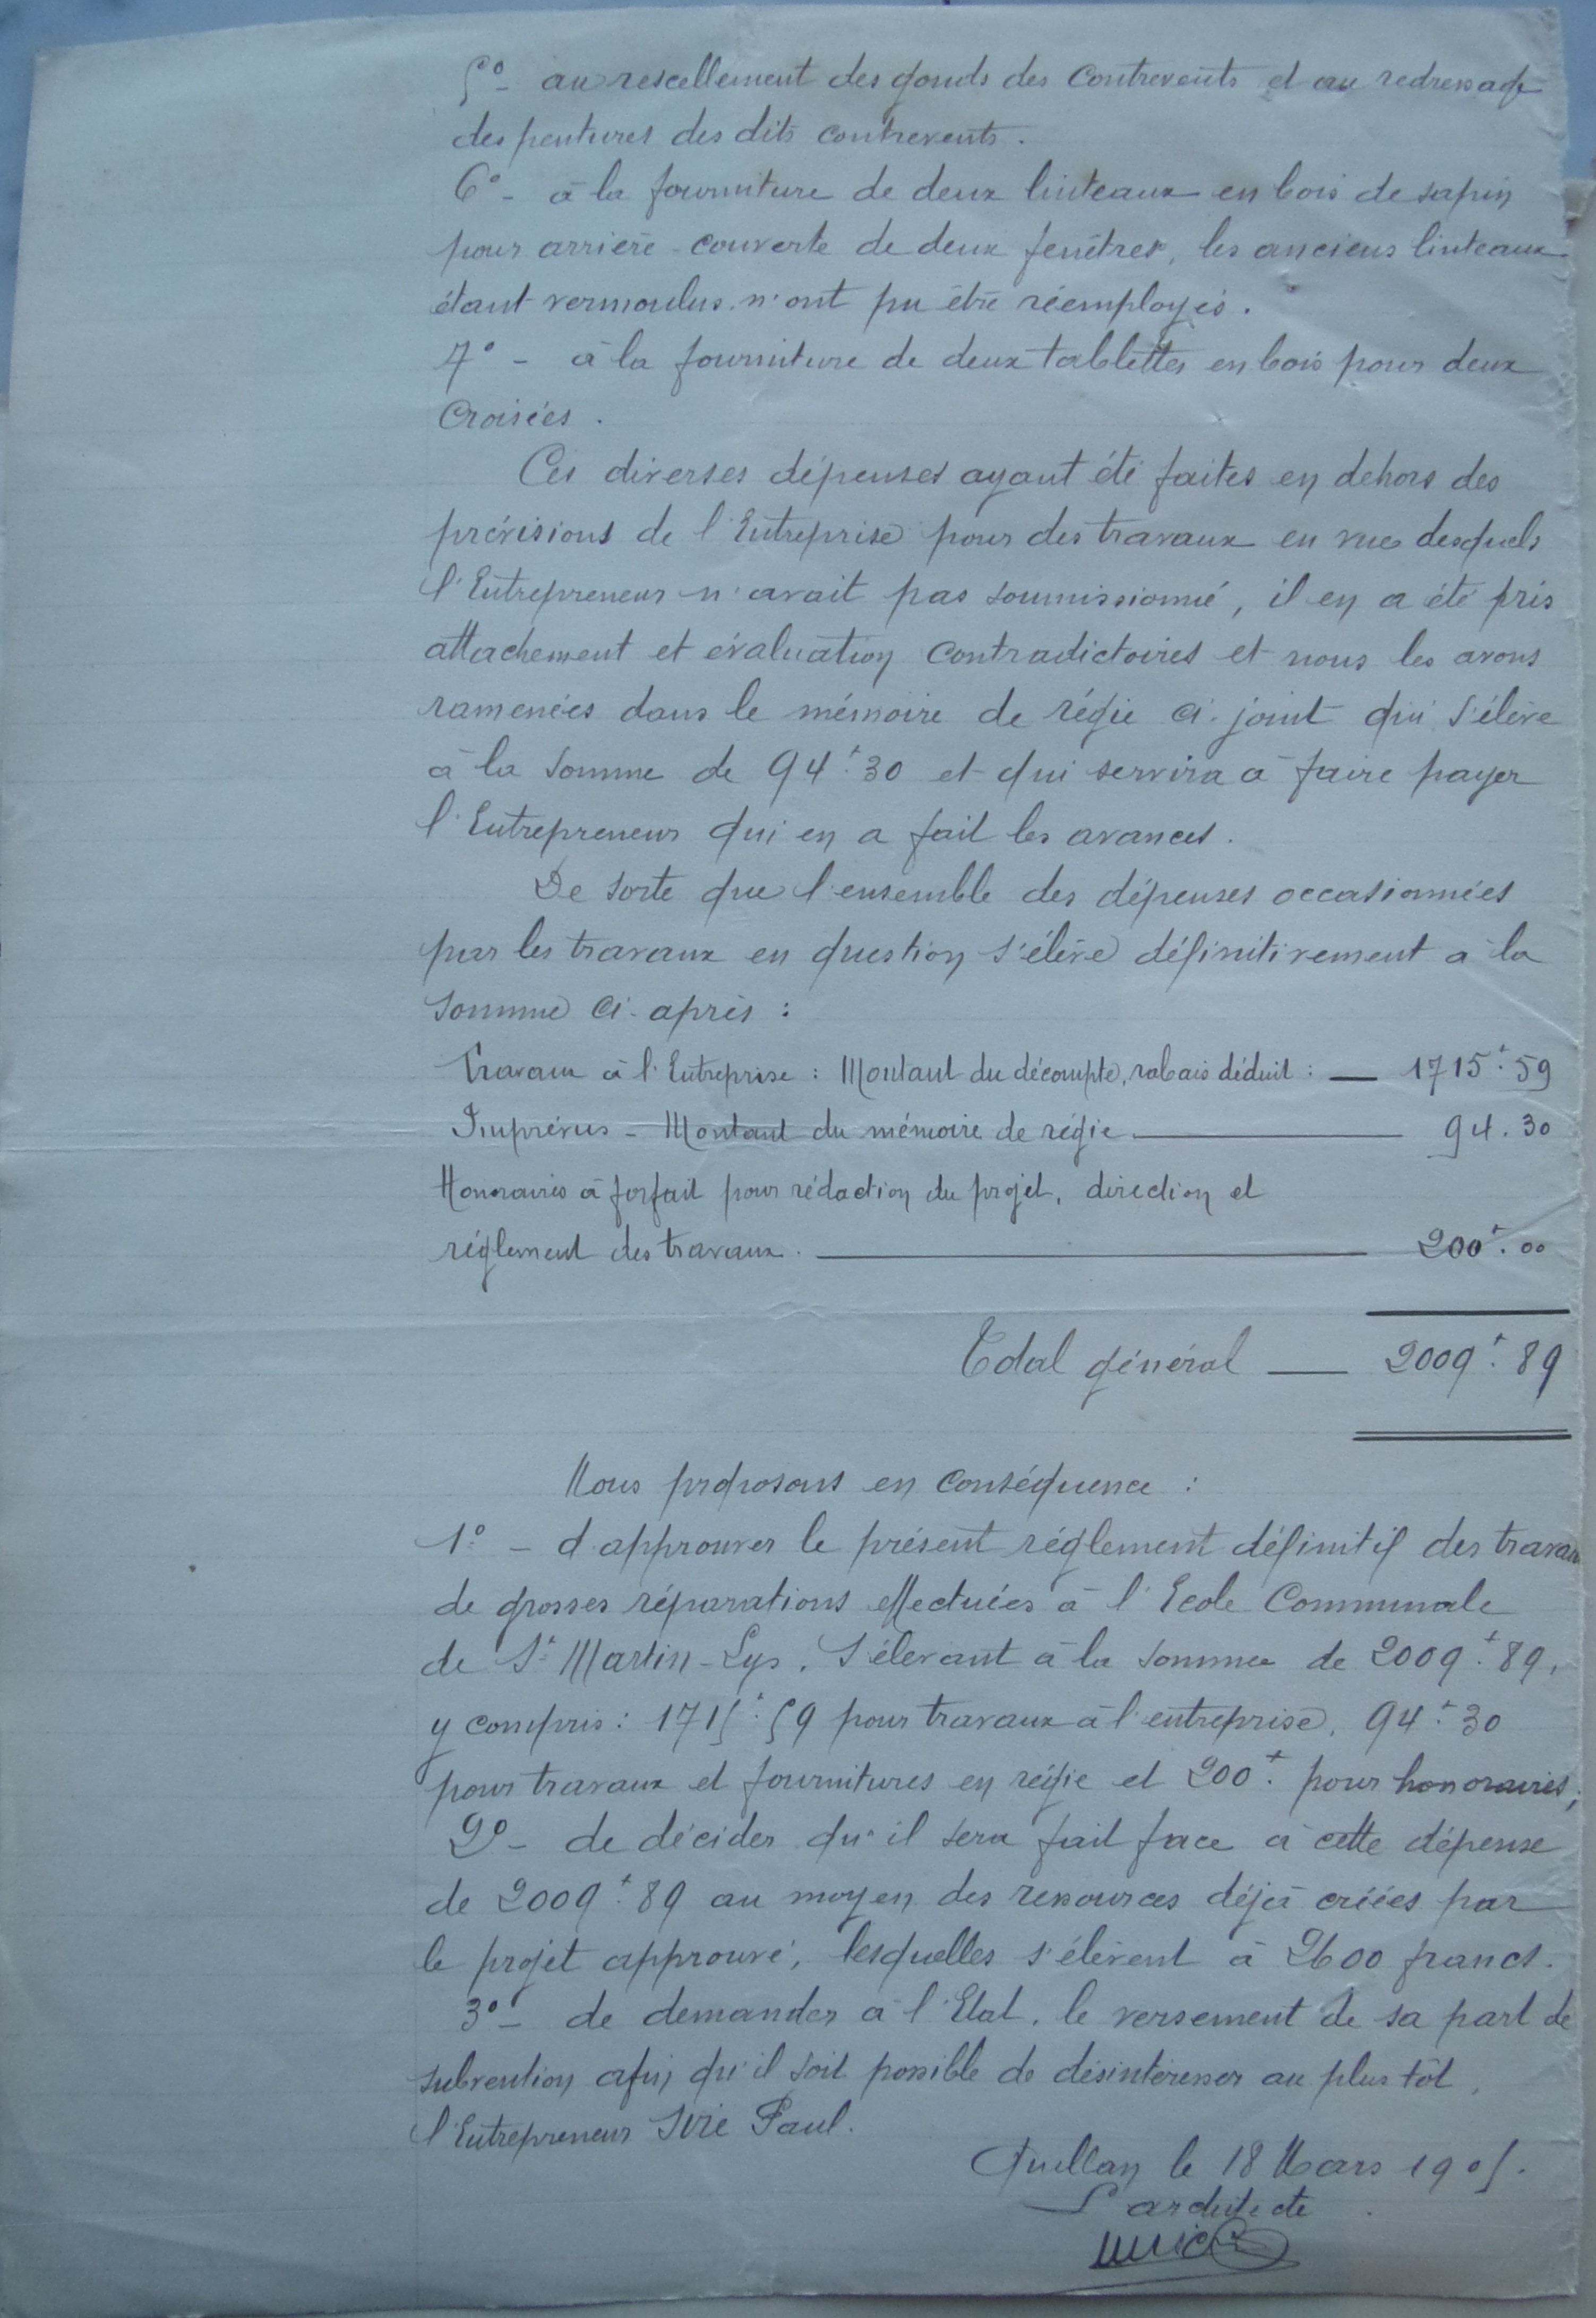 5° - au rescellement des gonds des contrevents et au redressage
des pentures des dits contrevents.
6° - à la fourniture de deux linteaux en bois de sapin
pour arrière-couverte de deux fenêtres, les anciens linteaux
étant vermoulus n'ont pu être réemployés.
7° - à la fourniture de deux tablettes en bois pour deux
croisées.
Ces diverses dépenses ayant été faites en dehors des
prévisions de l'Entreprise pour des travaux en vue desquels
l'Entrepreneur n'avait pas soumissionné, il en a été pris
attachement et évaluation contradictoires et nous les avons
ramenées dans le mémoire de régie ci-joint qui s'élève
à la somme de 94f.30 et qui servira à faire payer
l'Entrepreneur qui en a fait les avances.
De sorte que l'ensemble des dépenses occasionnées
par les travaux en question s'élève définitivement à la
somme ci-après :
Travaux à l'Entreprise : Montant du décompte, rabais déduit : — 1715f.59
Imprévus - Montant du mémoire de régie — 94.30
Honoraires à forfait pour rédaction du projet, direction et
réglement des travaux. — 200f.00
Total général — 2009f.89
Nous proposons en conséquence :
1° - d'approuver le présent réglement définitif des travaux
de grosses réparations effectuées à l'Ecole Communale
de St Martin-Lys, s'élevant à la somme de 2009f.89,
y compris : 1715f.59 pour travaux à l'entreprise, 94f.30
pour travaux et fournitures en régie et 200f. pour honoraires;
2° - de décider qu'il sera fait face à cette dépense
de 2009f.89 au moyen des ressources déjà créées par
le projet approuvé, lesquelles s'élèvent à 2600 francs.
3° - de demander à l'Etat, le versement de sa part de
subvention afin qu'il soit possible de désintéresser au plus tôt,
l'Entrepreneur Sirie Paul.
Quillan le 18 Mars 1905.
L'architecte